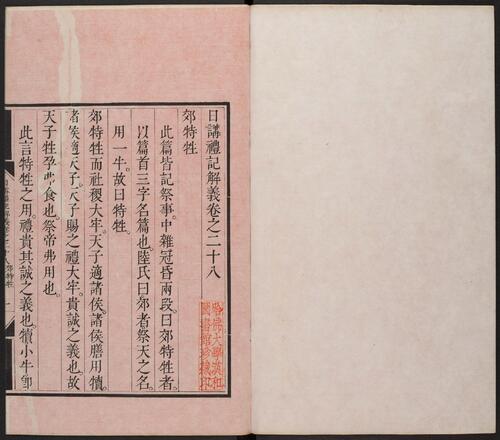 日講禮記解義卷之二十八
郊特牲
此篇皆記祭事。中雜冠昏兩段。曰郊特牲者。
以篇首三字名篇也。陸氏曰郊者祭天之名。
用一牛。故曰特牲。
郊特牲而社稷大牢。天子適諸侯。諸侯膳用犢。
諸侯適天子。天子賜之禮大牢。貴誠之義也。故
天子牲孕弗食也。祭帝弗用也。
此言特牲之用。禮貴其誠之義也。犢小牛。
郊特牲
一
哈佛大學漢和
圖書館珍藏印